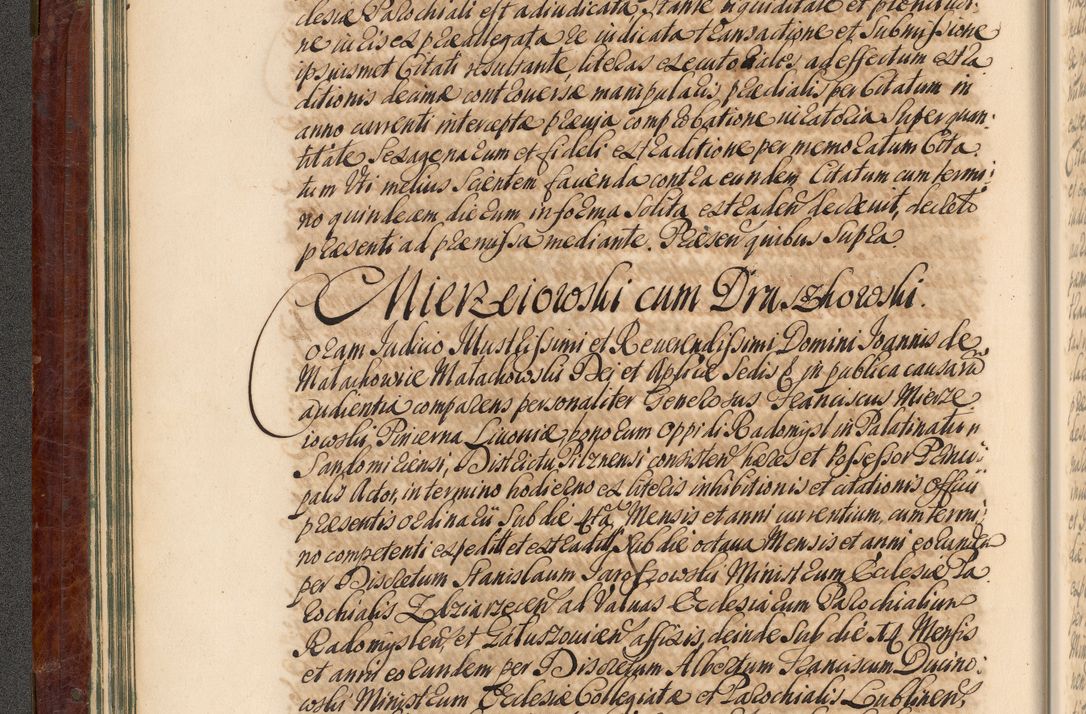 clesiæ Parochiali est adiudicata stante liquiditate et plenitudi-
ne iuris ex præallegata re iudicata transactione et Submissione
ipsiusmet Citati resultante, literas executoriales ad effectum extra
ditionis decimæ controversæ manipularis prædialis per Citatum in
anno currenti interceptæ prævia comprobatione iuratoria Super quan-
titate Sexagenarum et fideli extraditione per memoratum Cita
tum Uti melius Scientem facienda contra eundem Citatum cum termi-
no quindecem dierum in forma Solita extraden decrevit, decreto
præsenti ad præmissa mediante. Præsen quibus Supra.
Mierzeiowski cum Druszkowski.
Coram Judicio Illustrissimi et Reverendissimi Domini Joannis de
Małachowice Małachowski Dei et Aplicæ Sedis G in publica causarum
audientia comparens personaliter Generosus Franciscus Mierze
iowski, Pincerna Livoniæ, bonorum Oppidi Radomysl in Palatinatu
Sandomiriensi, Districtu Pilznensi consisten hæres et Possessor Princi-
palis Actor, in termino hodierno ex literis inhibitionis et citationis Officii
præsentis ordinarii Sub die 4ta Mensis et anni currentium, cum termi-
no competenti expedit et extradit, Sub die octava Mensis et anni eorundem
per Discretum Stanislaum Jaroszowski Ministrum Ecclesiæ Pa
rochialis Zdziarzecen ad Valvas Ecclesiarum Parochialium
Radomyslen, et Gałuszovicen affixis, deinde Sub die 14 Mensis
et anni eorundem per Discretum Albertum Franciscum Ducino-
wski Ministrum Ecclesiæ Collegiatæ et Parochialis Lublinen,